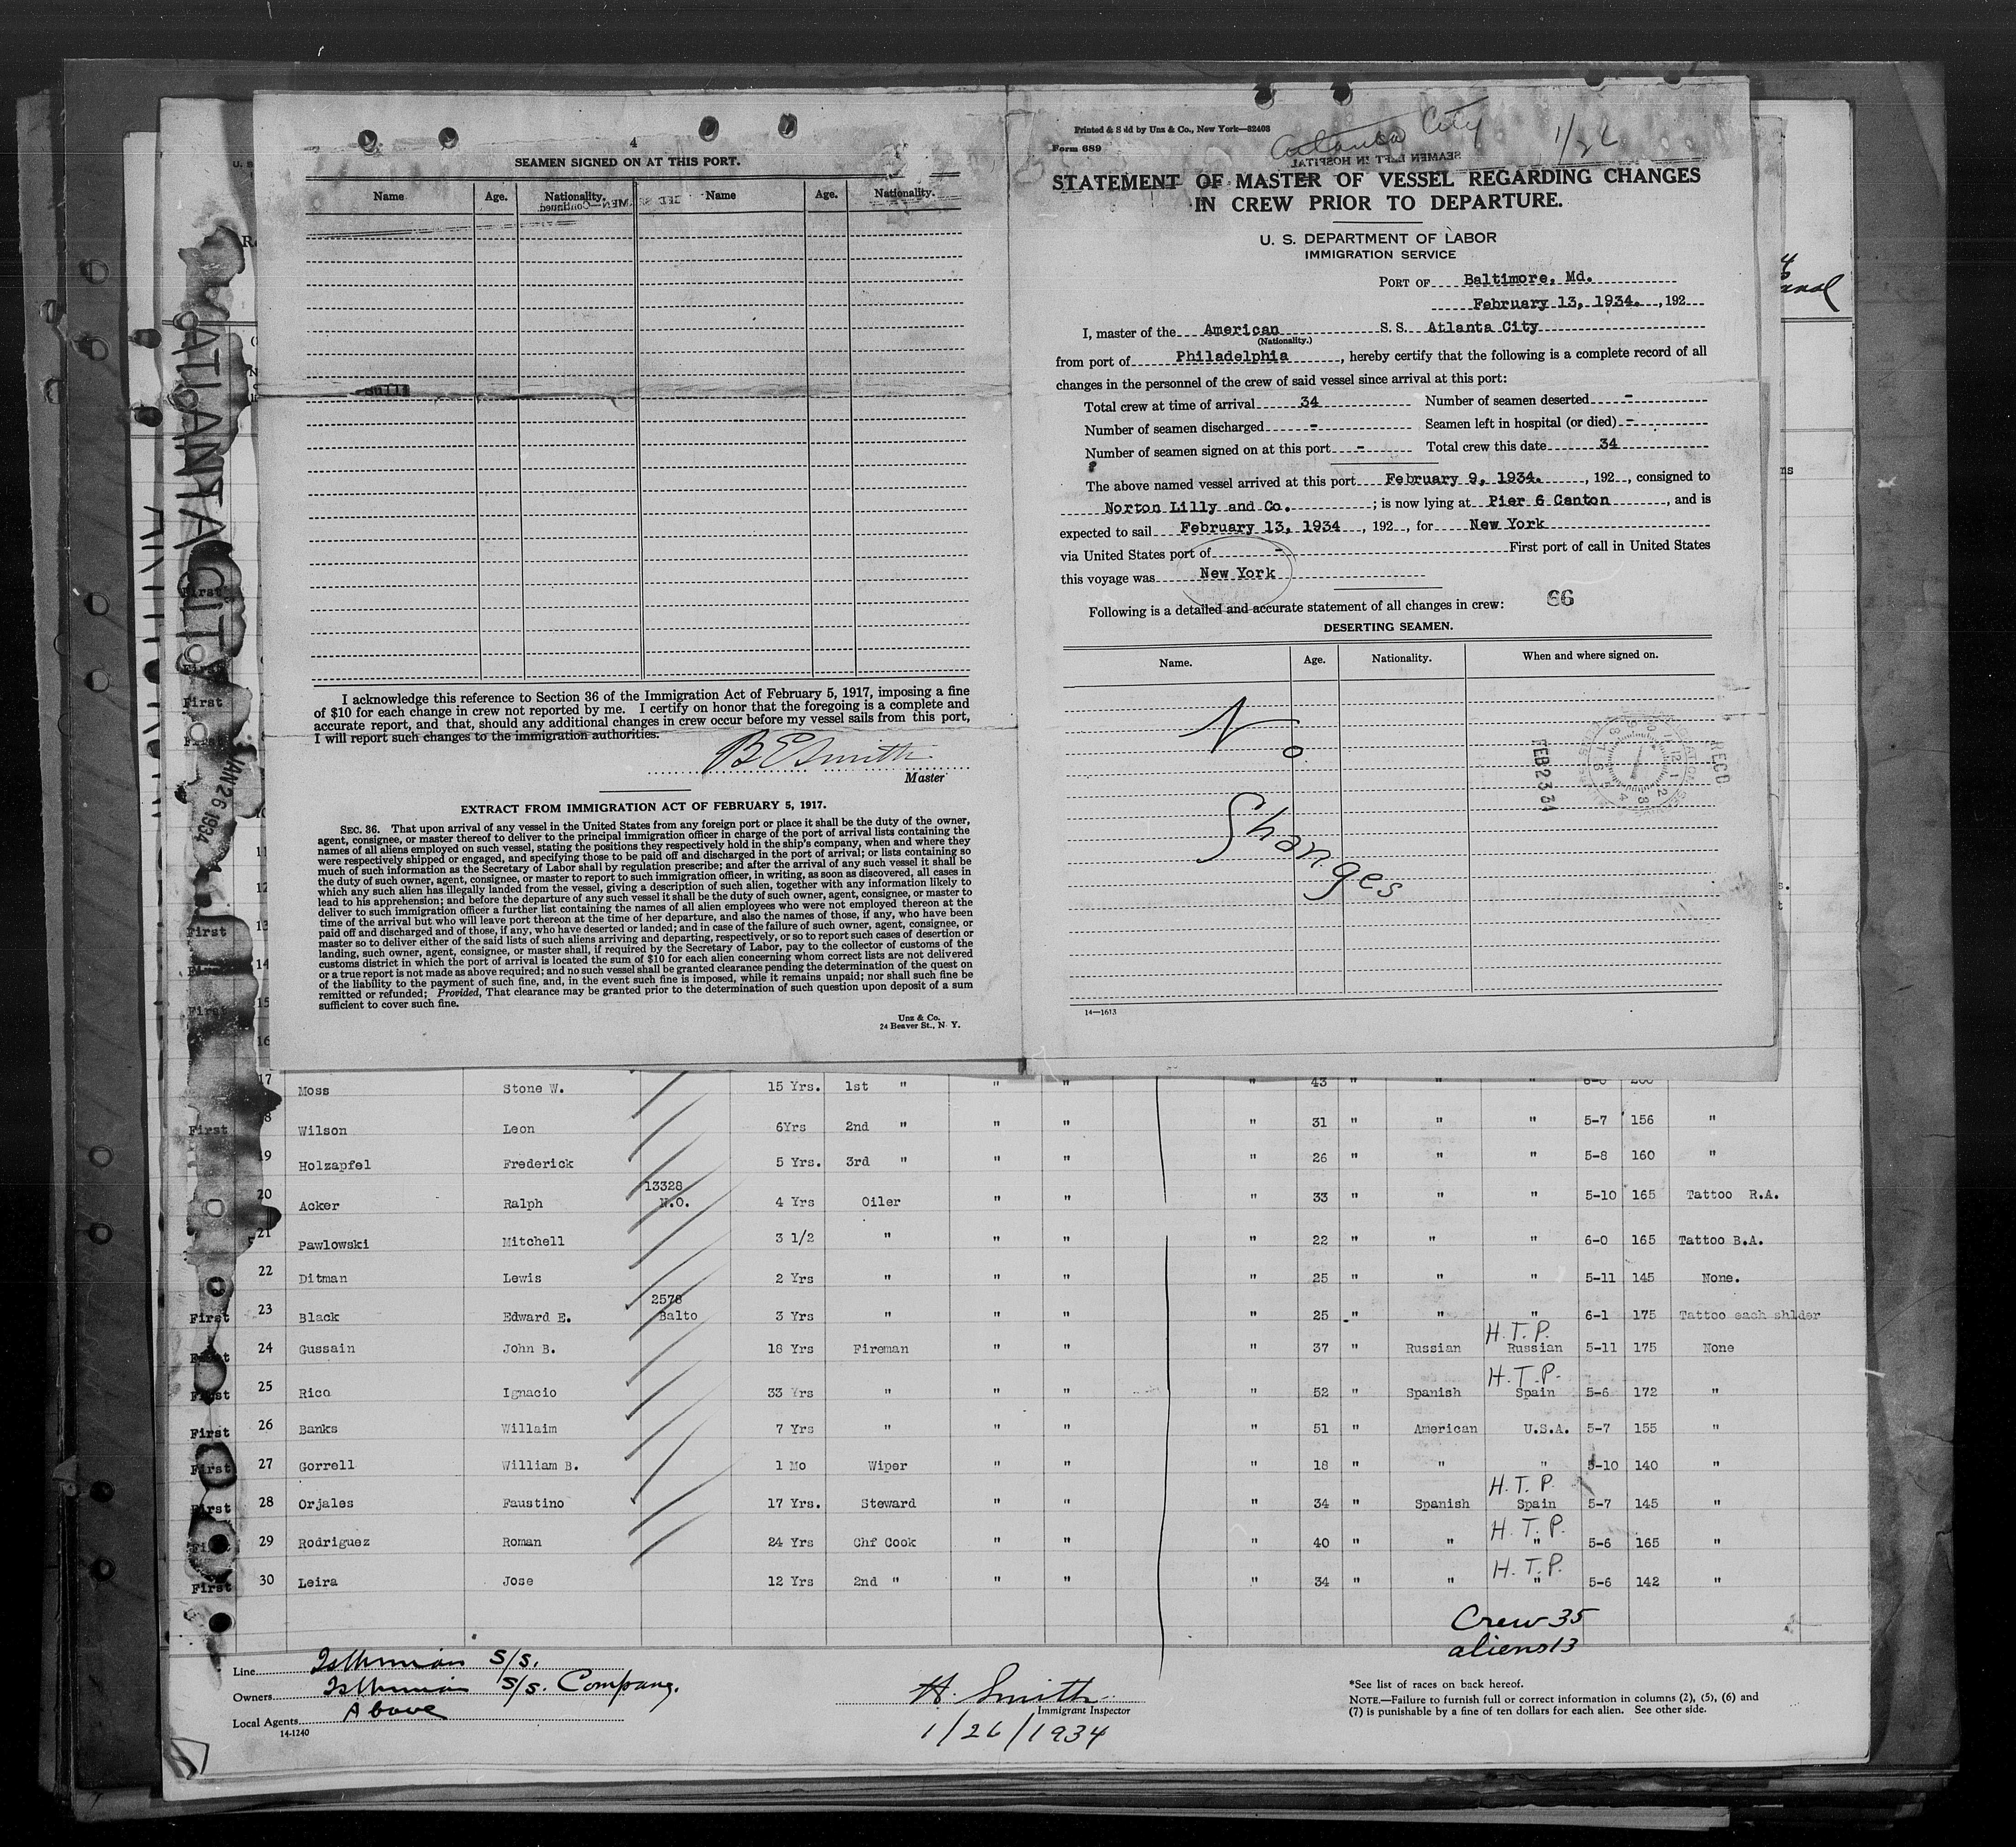 4
SEAMEN SIGNED ON AT THIS PORT.
Name Age. Nationality. Name Age. Nationality.
I acknowledge this reference to Section 36 of the Immigration Act of February 5, 1917, imposing a fine
of $10 for each change in crew not reported by me. I certify on honor that the foregoing is a complete and
accurate report, and that, should any additional changes in crew occur before my vessel sails from this port,
I will report such changes to the immigration authorities.
B E Smith
Master
EXTRACT FROM IMMIGRATION ACT OF FEBRUARY 5, 1917.
SEC. 36. That upon arrival of any vessel in the United States from any foreign port or place it shall be the duty of the owner,
agent, consignee, or master thereof to deliver to the principal immigration officer in charge of the port of arrival lists containing the
names of all aliens employed on such vessel, stating the positions they respectively hold in the ship's company, when and where they
were respectively shipped or engaged, and specifying those to be paid off and discharged in the port of arrival; or lists containing so
much of such information as the Secretary of Labor shall by regulation prescribe; and after the arrival of any such vessel it shall be
the duty of such owner, agent, consignee, or master to report to such immigration officer, in writing, as soon as discovered, all cases in
which any such alien has illegally landed from the vessel, giving a description of such alien, together with any information likely to
lead to his apprehension; and before the departure of any such vessel it shall be the duty of such owner, agent, consignee, or master to
deliver to such immigration officer a further list containing the names of all alien employees who were not employed thereon at the
time of the arrival but who will leave port thereon at the time of her departure, and also the names of those, if any, who have been
paid off and discharged and of those, if any, who have deserted or landed; and in case of the failure of such owner, agent, consignee, or
master so to deliver either of the said lists of such aliens arriving and departing, respectively, or so to report such cases of desertion or
landing, such owner, agent, consignee, or master shall, if required by the Secretary of Labor, pay to the collector of customs of the
customs district in which the port of arrival is located the sum of $10 for each alien concerning whom correct lists are not delivered
or a true report is not made as above required; and no such vessel shall be granted clearance pending the determination of the quest on
of the liability to the payment of such fine, and, in the event such fine is imposed, while it remains unpaid; nor shall such fine be
remitted or refunded; Provided, That clearance may be granted prior to the determination of such question upon deposit of a sum
sufficient to cover such fine.
Unz & Co.
24 Beaver St., N. Y.
Printed & Sold by Unz & Co., New York—82403
Form 689
Atlanta City 1/26
SEAMEN LEFT IN HOSPITAL
STATEMENT OF MASTER OF VESSEL REGARDING CHANGES
IN CREW PRIOR TO DEPARTURE.
U. S. DEPARTMENT OF LABOR
IMMIGRATION SERVICE
PORT OF Baltimore, Md.
February 13, 1934. , 192
I, master of the American S. S. Atlanta City
(Nationality.)
from port of Philadelphia , hereby certify that the following is a complete record of all
changes in the personnel of the crew of said vessel since arrival at this port:
Total crew at time of arrival 34 Number of seamen deserted -
Number of seamen discharged - Seamen left in hospital (or died) -
Number of seamen signed on at this port - Total crew this date 34
The above named vessel arrived at this port February 9, 1934. , 192 , consigned to
Norton Lilly and Co. ; is now lying at Pier 6 Canton , and is
expected to sail February 13, 1934 , 192 , for New York
via United States port of - First port of call in United States
this voyage was New York
Following is a detailed and accurate statement of all changes in crew: 66
DESERTING SEAMEN.
Name. Age. Nationality. When and where signed on.
No
Changes
RECD
FEB 23 34
14—1613
ATLANTA CITY
JAN 26 1934
17 Moss Stone W. 15 Yrs. 1st " " " " 43 " " "
First 18 Wilson Leon 6Yrs 2nd " " " " 31 " " " 5-7 156 "
19 Holzapfel Frederick 5 Yrs. 3rd " " " " 26 " " " 5-8 160 "
20 Acker Ralph 13328 N.O. 4 Yrs Oiler " " " 33 " " " 5-10 165 Tattoo R.A.
21 Pawlowski Mitchell 3 1/2 " " " " 22 " " " 6-0 165 Tattoo B.A.
22 Ditman Lewis 2 Yrs " " " " 25 " " " 5-11 145 None.
First 23 Black Edward E. 2578 Balto 3 Yrs " " " " 25 " " " 6-1 175 Tattoo each shlder
First 24 Gussain John B. 18 Yrs Fireman " " " 37 " Russian H.T.P. Russian 5-11 175 None
First 25 Rico Ignacio 33 Yrs " " " " 52 " Spanish H.T.P. Spain 5-6 172 "
First 26 Banks Willaim 7 Yrs " " " " 51 " American U.S.A. 5-7 155 "
First 27 Gorrell William B. 1 Mo Wiper " " " 18 " " " 5-10 140 "
First 28 Orjales Faustino 17 Yrs. Steward " " " 34 " Spanish H.T.P. Spain 5-7 145 "
First 29 Rodriguez Roman 24 Yrs Chf Cook " " " 40 " " H.T.P. " 5-6 165 "
First 30 Leira Jose 12 Yrs 2nd " " " " 34 " " H.T.P. " 5-6 142 "
Crew 35
aliens 13
Line Isthmian S/S.
Owners Isthmian S/S. Company.
Local Agents Above
14-1240
H. Smith
Immigrant Inspector
1/26/1934
*See list of races on back hereof.
NOTE.—Failure to furnish full or correct information in columns (2), (5), (6) and
(7) is punishable by a fine of ten dollars for each alien. See other side.